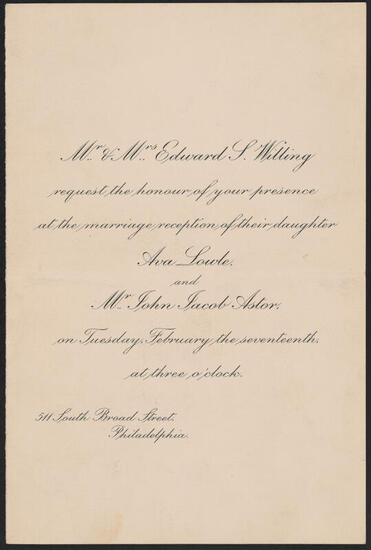 Mr. & Mrs. Edward S. Willing
request the honour of your presence
at the marriage reception of their daughter
Ava Lowle.
and
Mr. John Jacob Astor.
on Tuesday, February the seventeenth.
at three o'clock.
511 South Broad Street.
Philadelphia.